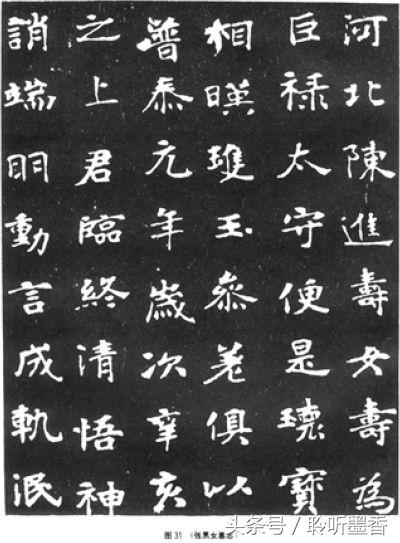 河北陳進壽女壽為
巨禄太守便是瓌寶
相暎琟玉參差俱以
普泰元年歲次辛亥
之上君臨終清悟神
誚端眀動言成軌泯
图 31 《张黑女墓志》
头条号 / 聆听墨香